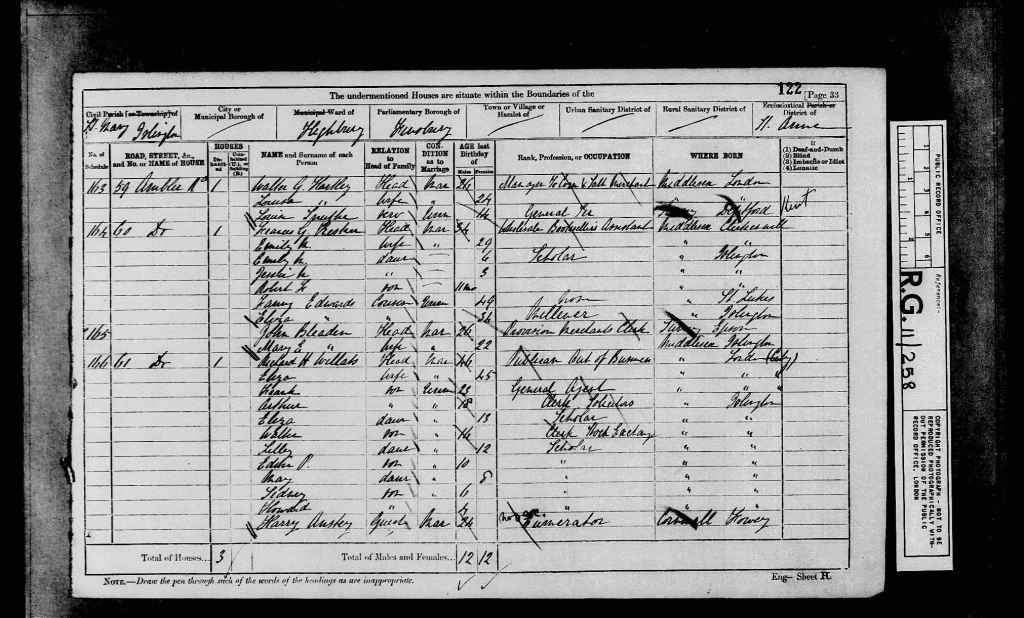 122
[Page 33
The undermentioned Houses are situate within the Boundaries of the
Civil Parish [or Township] of
City or Municipal Borough of
Municipal Ward of
Parliamentary Borough of
Town or Village or Hamlet of
Urban Sanitary District of
Rural Sanitary District of
Ecclesiastical Parish or District of
St. Mary Islington
Highbury
Finsbury
St. Anne
No. of Schedule
ROAD, STREET, &c., and No. or NAME of HOUSE
HOUSES
NAME and Surname of each Person
RELATION to Head of Family
CONDITION as to Marriage
AGE last Birthday of
Males
Females
Rank, Profession, or OCCUPATION
WHERE BORN
If
(1) Deaf-and-Dumb
(2) Blind
(3) Imbecile or Idiot
(4) Lunatic
163 59 Ambler Rd 1 Walter G. Head Mar 26 Manager to Merchant Middlesex London
Louisa " Wife " 24
Louisa Serv Unm 14 General Ser Deptford Kent
164 60 Do 1 Francis G. Head Mar 34 Wholesale Booksellers Assistant Middlesex Clerkenwell
Emily M. Wife " 29 " "
Emily M. daur 6 Scholar " Islington
Jessie M. " 3 " "
Robert F. son 11mo "
Fanny Edwards Cousin Unm 49 " St. Lukes
Eliza " " " 34 Milliner " Islington
165 John Bleaden Head Mar 26 Provision Merchants Clerk Surrey Epsom
Mary E. " Wife " 22 Middlesex Islington
166 61 Do 1 Richard H Willats Head Mar 46 Publican Out of Business " London (City)
Eliza Wife " 45 " " "
Frank son Unm 23 General Agent " " "
Arthur " " 18 Clerk Solicitors " Islington
Eliza daur " 13 Scholar " "
Walter son " 14 Clerk Stock Exchang " "
Lilley daur " 12 Scholar " "
Edwin P. son " 10 " " "
May daur " 8 " " "
Sidney son " 6 " " "
Howard " "
Harry Anstey Guest Mar 24 Enumerator Cornwall Fowey
Total of Houses... 3
Total of Males and Females... 12 12
NOTE.—Draw the pen through such of the words of the headings as are inappropriate.
Eng— Sheet R.
PUBLIC RECORD OFFICE
1 2 3 4 5 6
Reference:-
R.G. 11/258
COPYRIGHT PHOTOGRAPH - NOT TO BE REPRODUCED PHOTOGRAPHICALLY WITHOUT PERMISSION OF THE PUBLIC RECORD OFFICE, LONDON